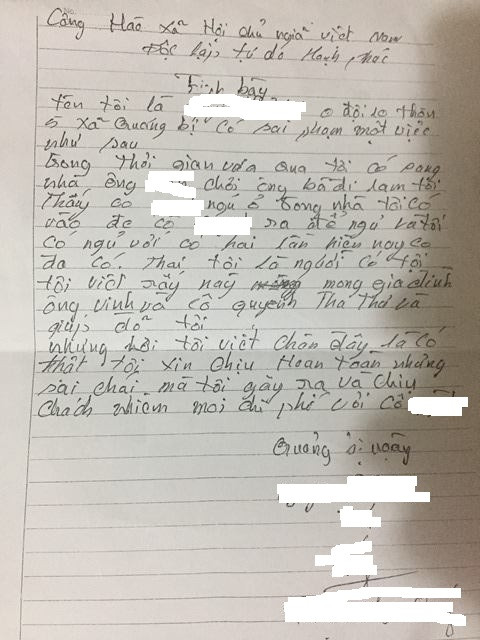 Công Hào xã Hội chủ nghĩã việt Nam
Độc lập, tự do Hạnh, phúc
Trình bày
tên tôi là o đội 10 thôn
5 xã Quảng bị có sai phạm một việc
như sau
trong thời gian vưa qua tôi có sang
nhà ông chơi ông bà đi lam tôi
thấy co ngu ở trong nhà tôi có
vào đe cô ra để ngủ và tôi
có ngủ với cô hai lần hiện nay co
đa có. Thai tôi là người có tội
tôi viết rấy nay mong gia đình
ông vinh và cô quyên Tha Thơ và
giup đỡ tôi
những nời tôi viết chên đây là có
thật tôi xin chịu Hoan toan những
sai chai mà tôi gây ra và chịu
chách nhiệm moi chi phế với cô
Quảng bị ngày